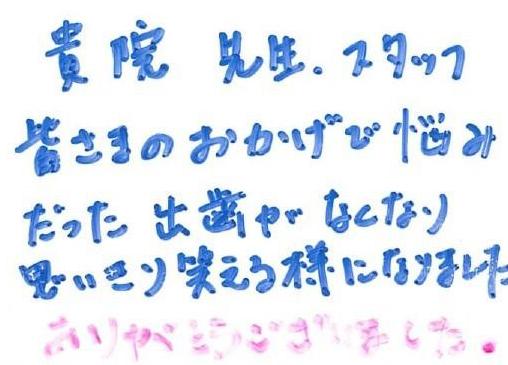 貴院 先生、スタッフ
皆さまのおかげで悩み
だった出歯がなくなり
思いきり笑える様になりました
ありがとうございました。